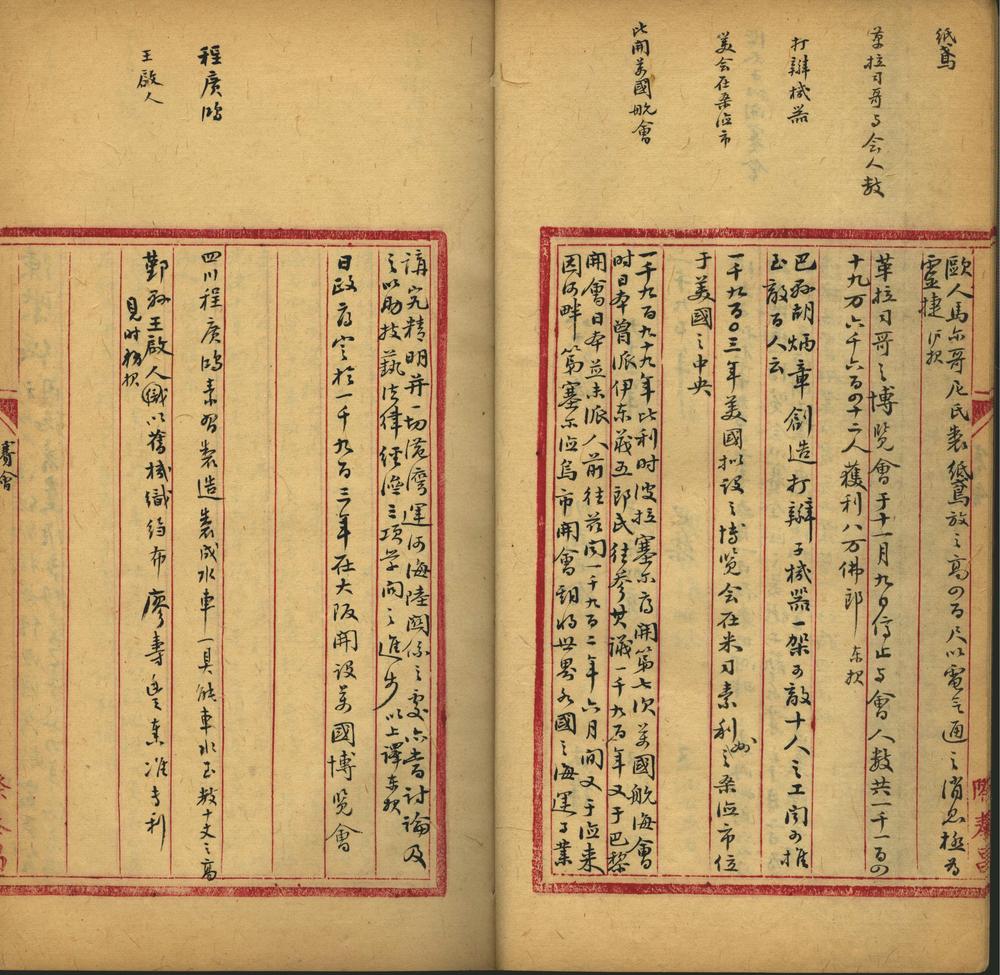 紙鳶
革拉司哥与会人数
打辮機器
美会在桑德市
比開萬國航會
歐人馬尔哥尼氏製紙鳶放之高四百尺以電气通之消息極为
靈捷 滬报
革拉司哥之博覽會于十一月九日停止与會人数共一千一百四
十九万六千六百四十二人獲利八万佛郎 东报
巴孙胡炳章創造打辮子機器一架可敵十人之工闻可推
至敵百人云
一千九百〇三年美國拟設之博覽会在米司素利州之桑德市位
于美國之中央
一千八百九十九年比利时波拉塞尔府開第七次萬國航海會
时日本曾派伊东義五郎氏往参其議一千九百年又于巴黎
開會日本並未派人前往茲闻一千九百二年六月間又于德来
因河畔第塞尔德烏市開會討论世界各國之海運事業
講究精明并一切港灣運河海陸関係之處亦皆討論及
之以助技藝法律經濟三項学问之進步 以上譯东报
日政府定於一千九百三年在大阪開設萬國博覽會
程廣鸿
四川程廣鸿素習製造製成水車一具能車水至数十丈之高
王啟人
鄞孙王啟人織以舊機織绉布 廖壽丰奏准专利
見时務报
賽會